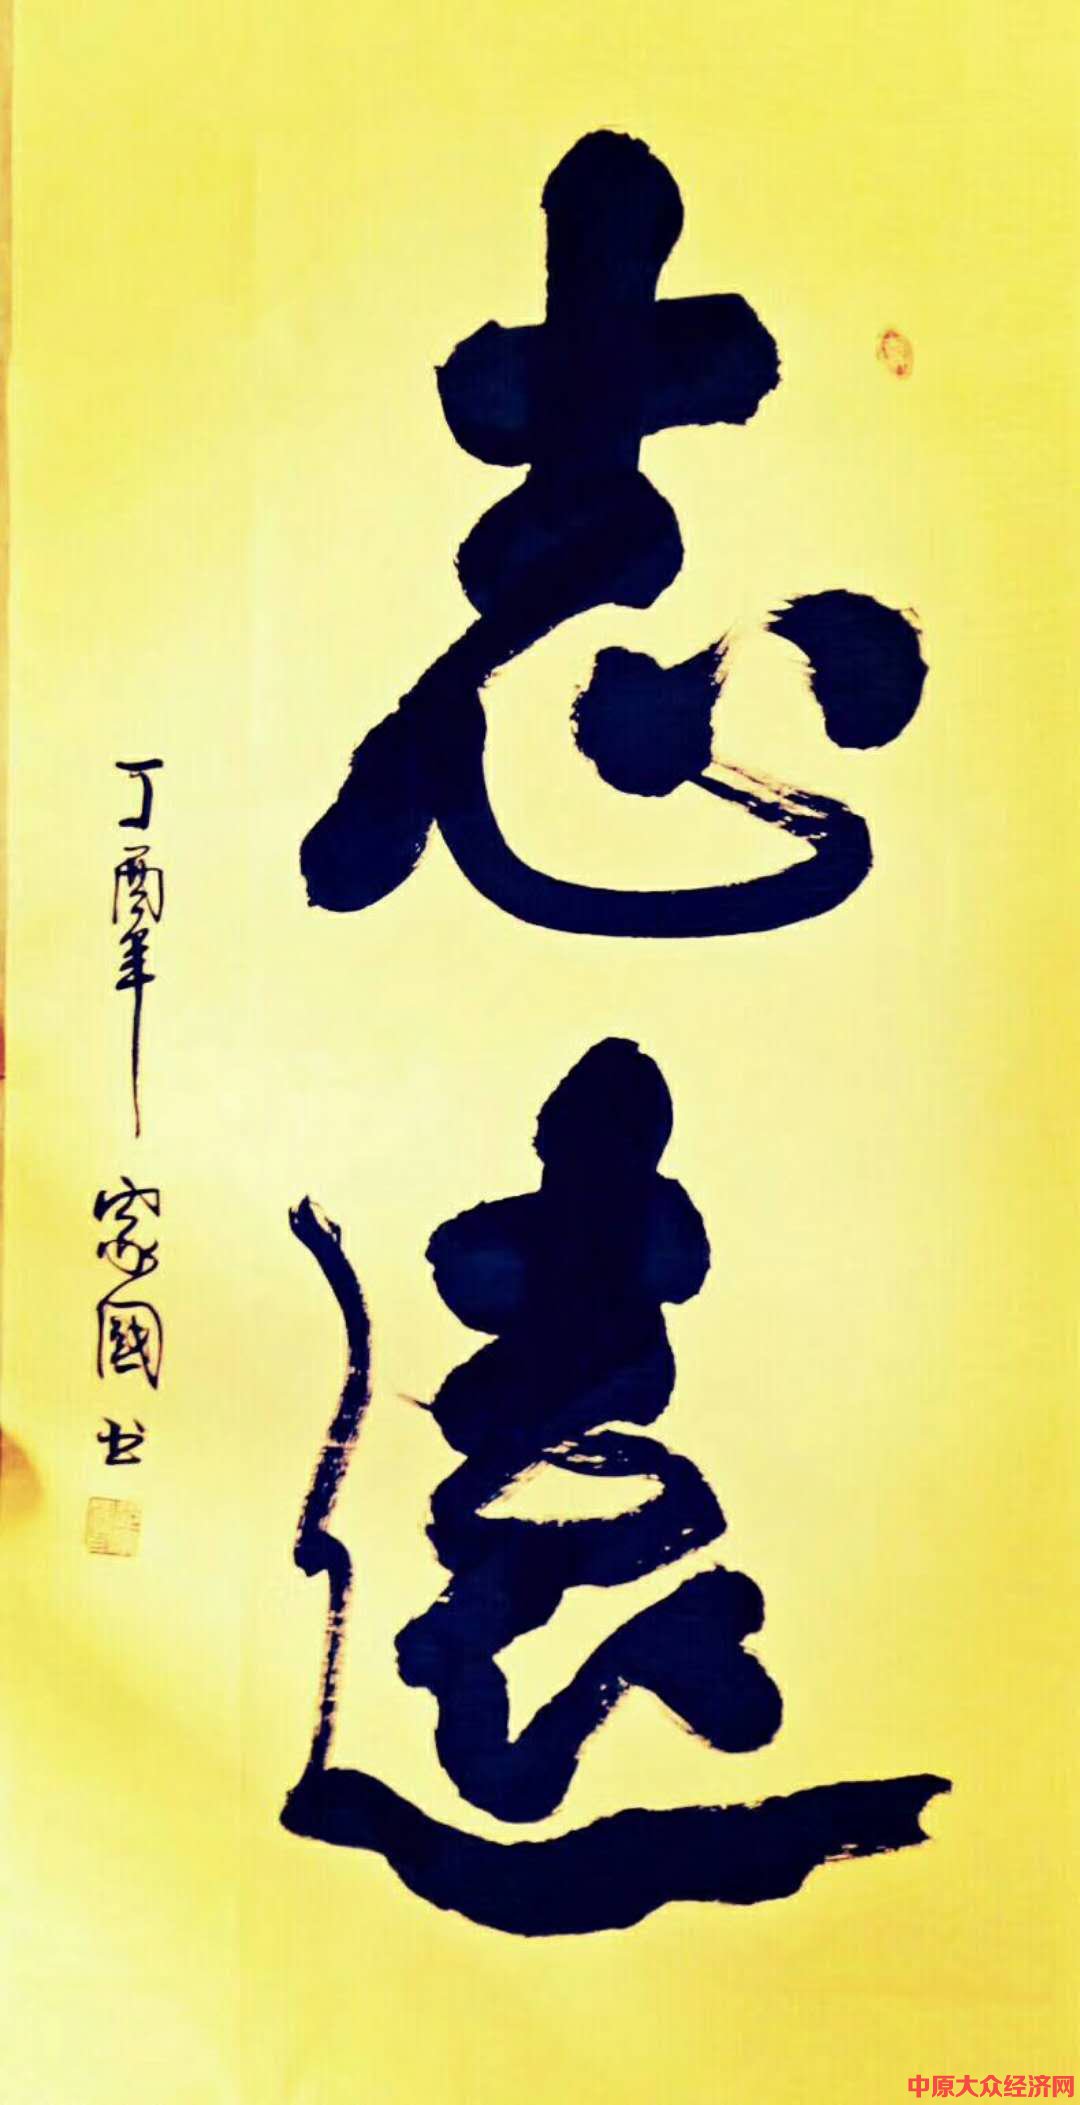 志遠
丁酉年 家國书
中原大众经济网